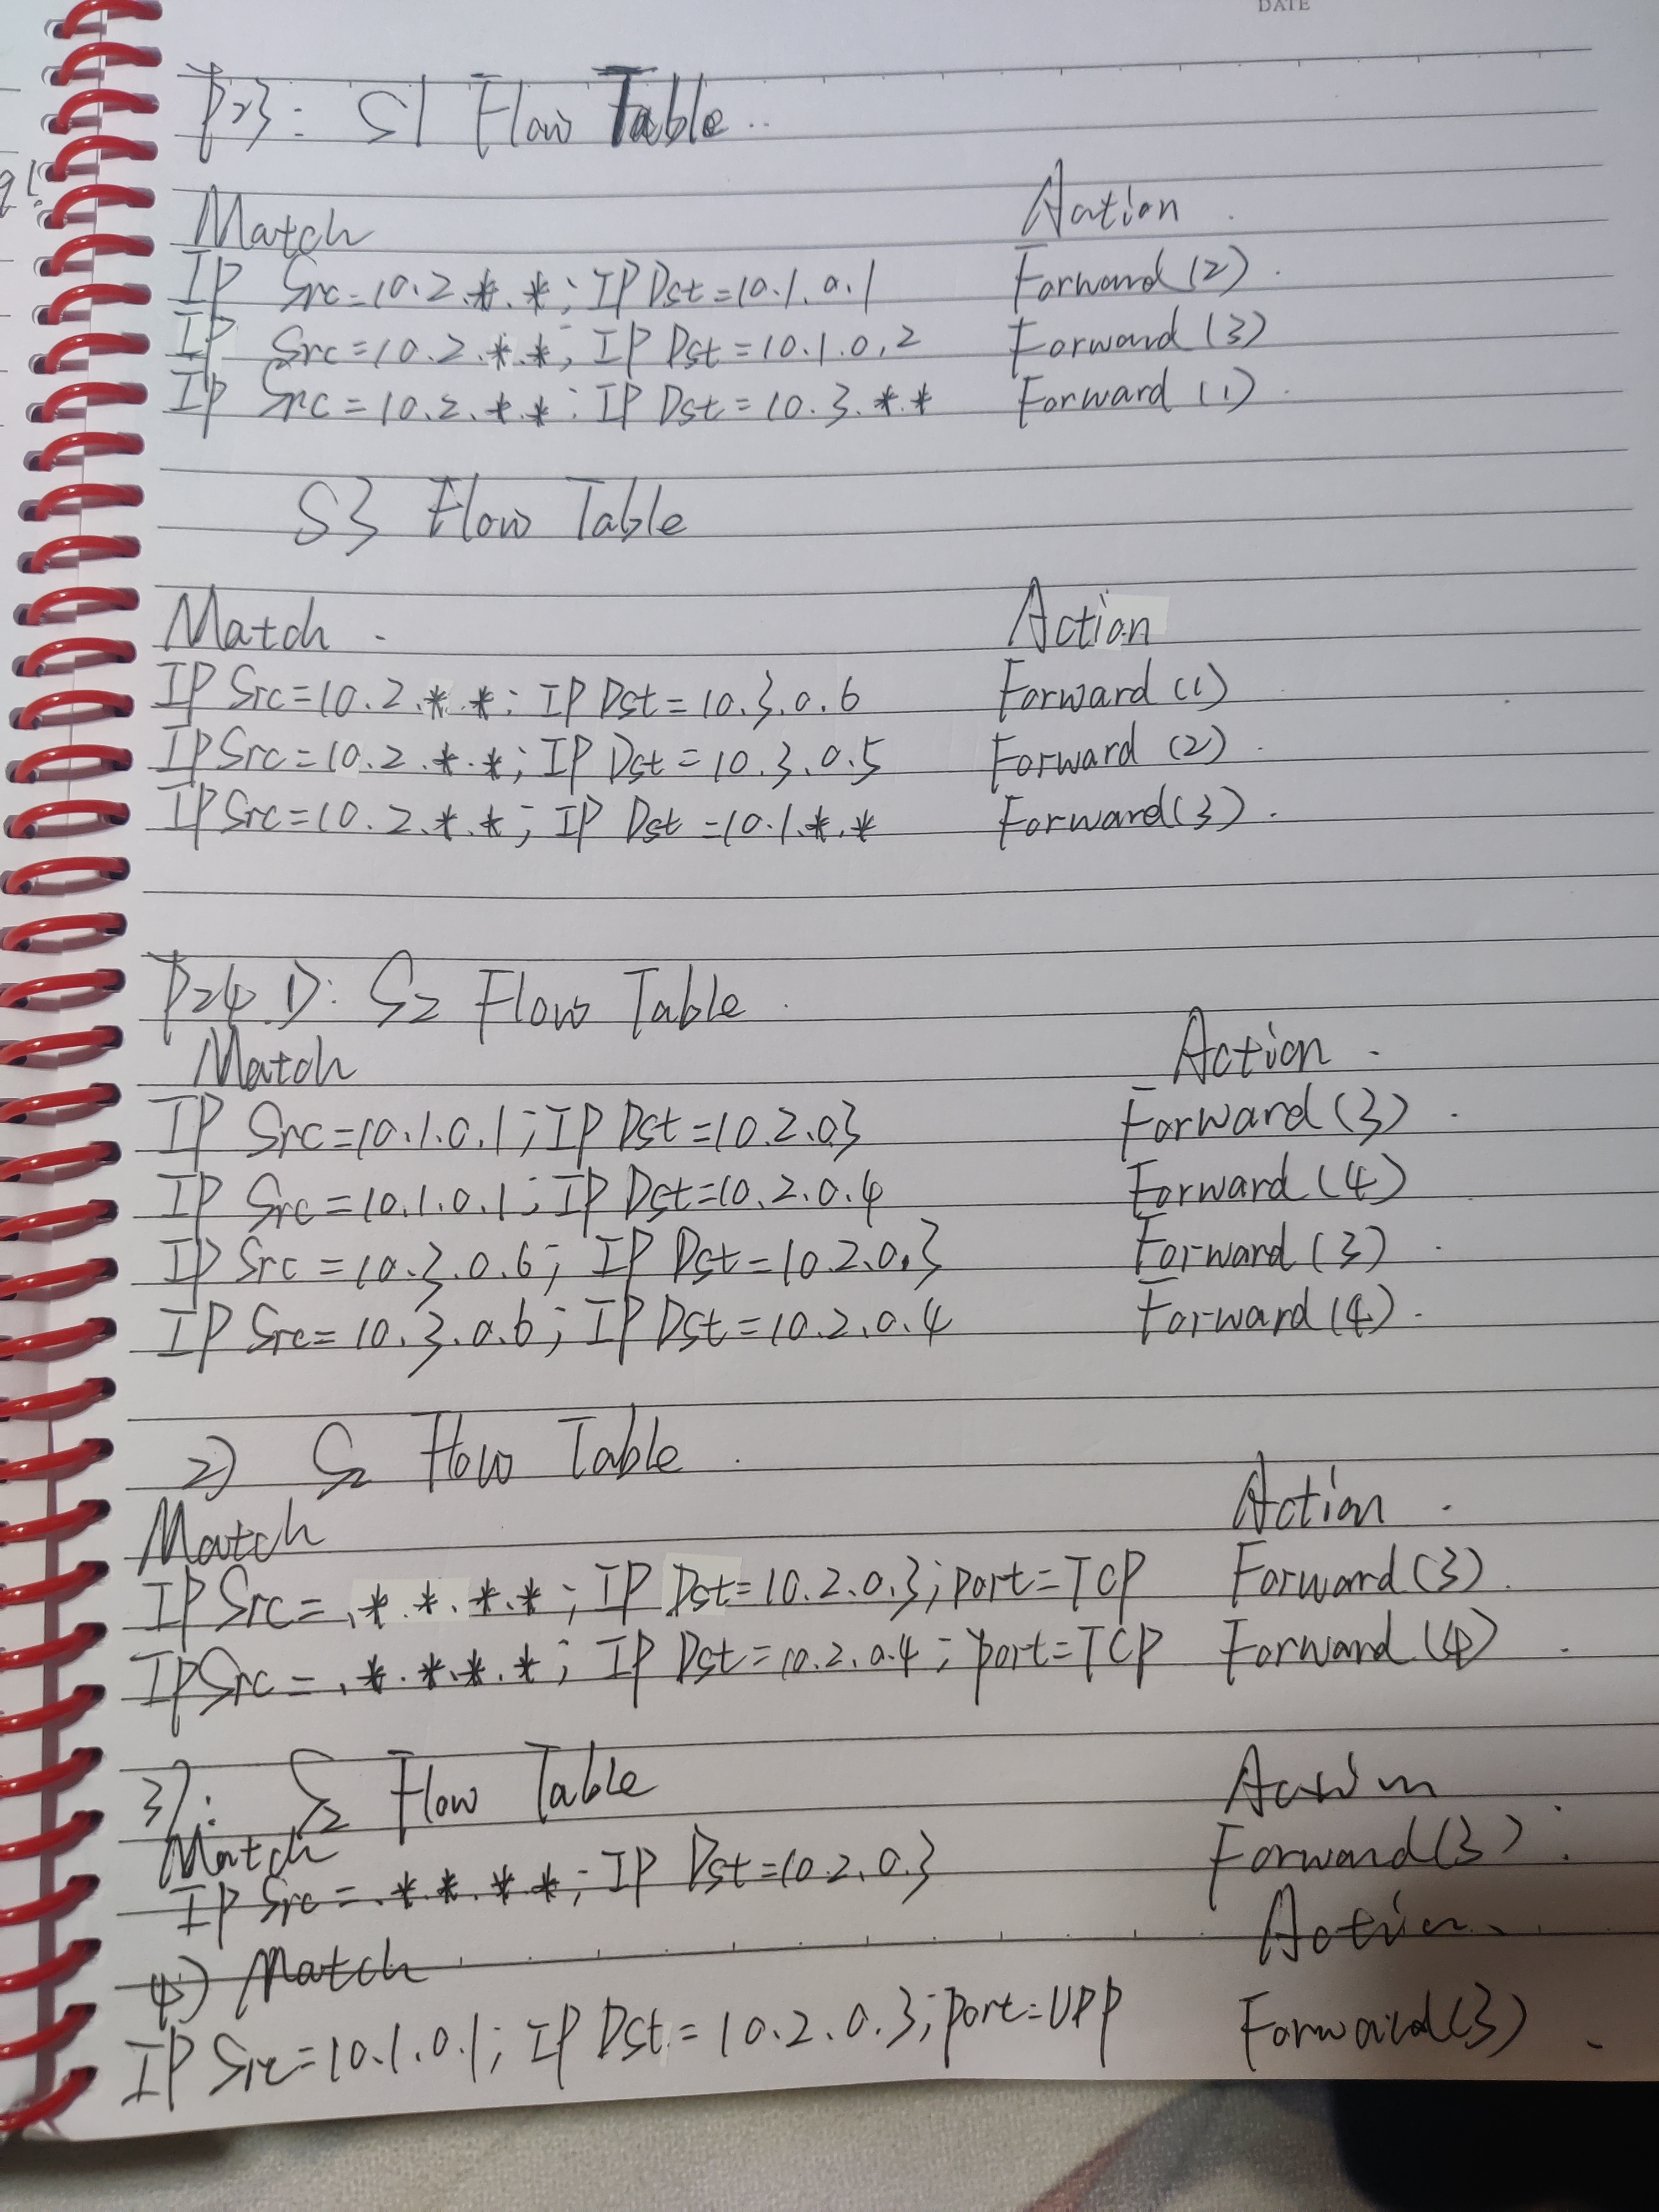 DATE
P23: S1 Flow Table..
Match Action.
IP Src=10.2.*.*; IP Dst=10.1.0.1 Forward(2).
IP Src=10.2.*.*; IP Dst=10.1.0.2 Forward(3)
IP Src=10.2.*.*: IP Dst=10.3.*.* Forward(1).
S3 Flow Table
Match. Action
IP Src=10.2.*.*: IP Dst=10.3.0.6 Forward(1)
IP Src=10.2.*.*; IP Dst=10.3.0.5 Forward(2).
IP Src=10.2.*.*; IP Dst=10.1.*.* Forward(3).
P24.1): S2 Flow Table.
Match Action.
IP Src=10.1.0.1; IP Dst=10.2.0.3 Forward(3).
IP Src=10.1.0.1; IP Dst=10.2.0.4 Forward(4)
IP Src=10.3.0.6; IP Dst=10.2.0.3 Forward(3).
IP Src=10.3.0.6; IP Dst=10.2.0.4 Forward(4).
2) S2 Flow Table.
Match Action.
IP Src=.*.*.*.*; IP Dst=10.2.0.3; port=TCP Forward(3).
IP Src=.*.*.*.*; IP Dst=10.2.0.4; port=TCP Forward(4).
3): S2 Flow Table Action
Match
IP Src=.*.*.*.*; IP Dst=10.2.0.3 Forward(3).
4) Match Action.
IP Src=10.1.0.1; IP Dst=10.2.0.3; port=UDP Forward(3).